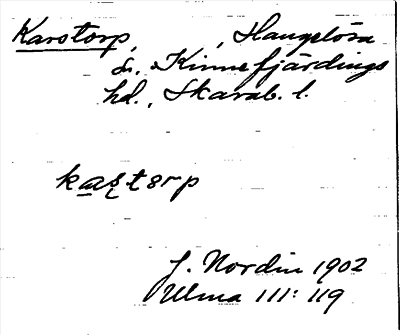 Karstorp, , Haugelösa
sn. Kinnefjärdings
hd., Skarab. l.
kaʂtorp
J. Nordin 1902
Ulma 111: 119